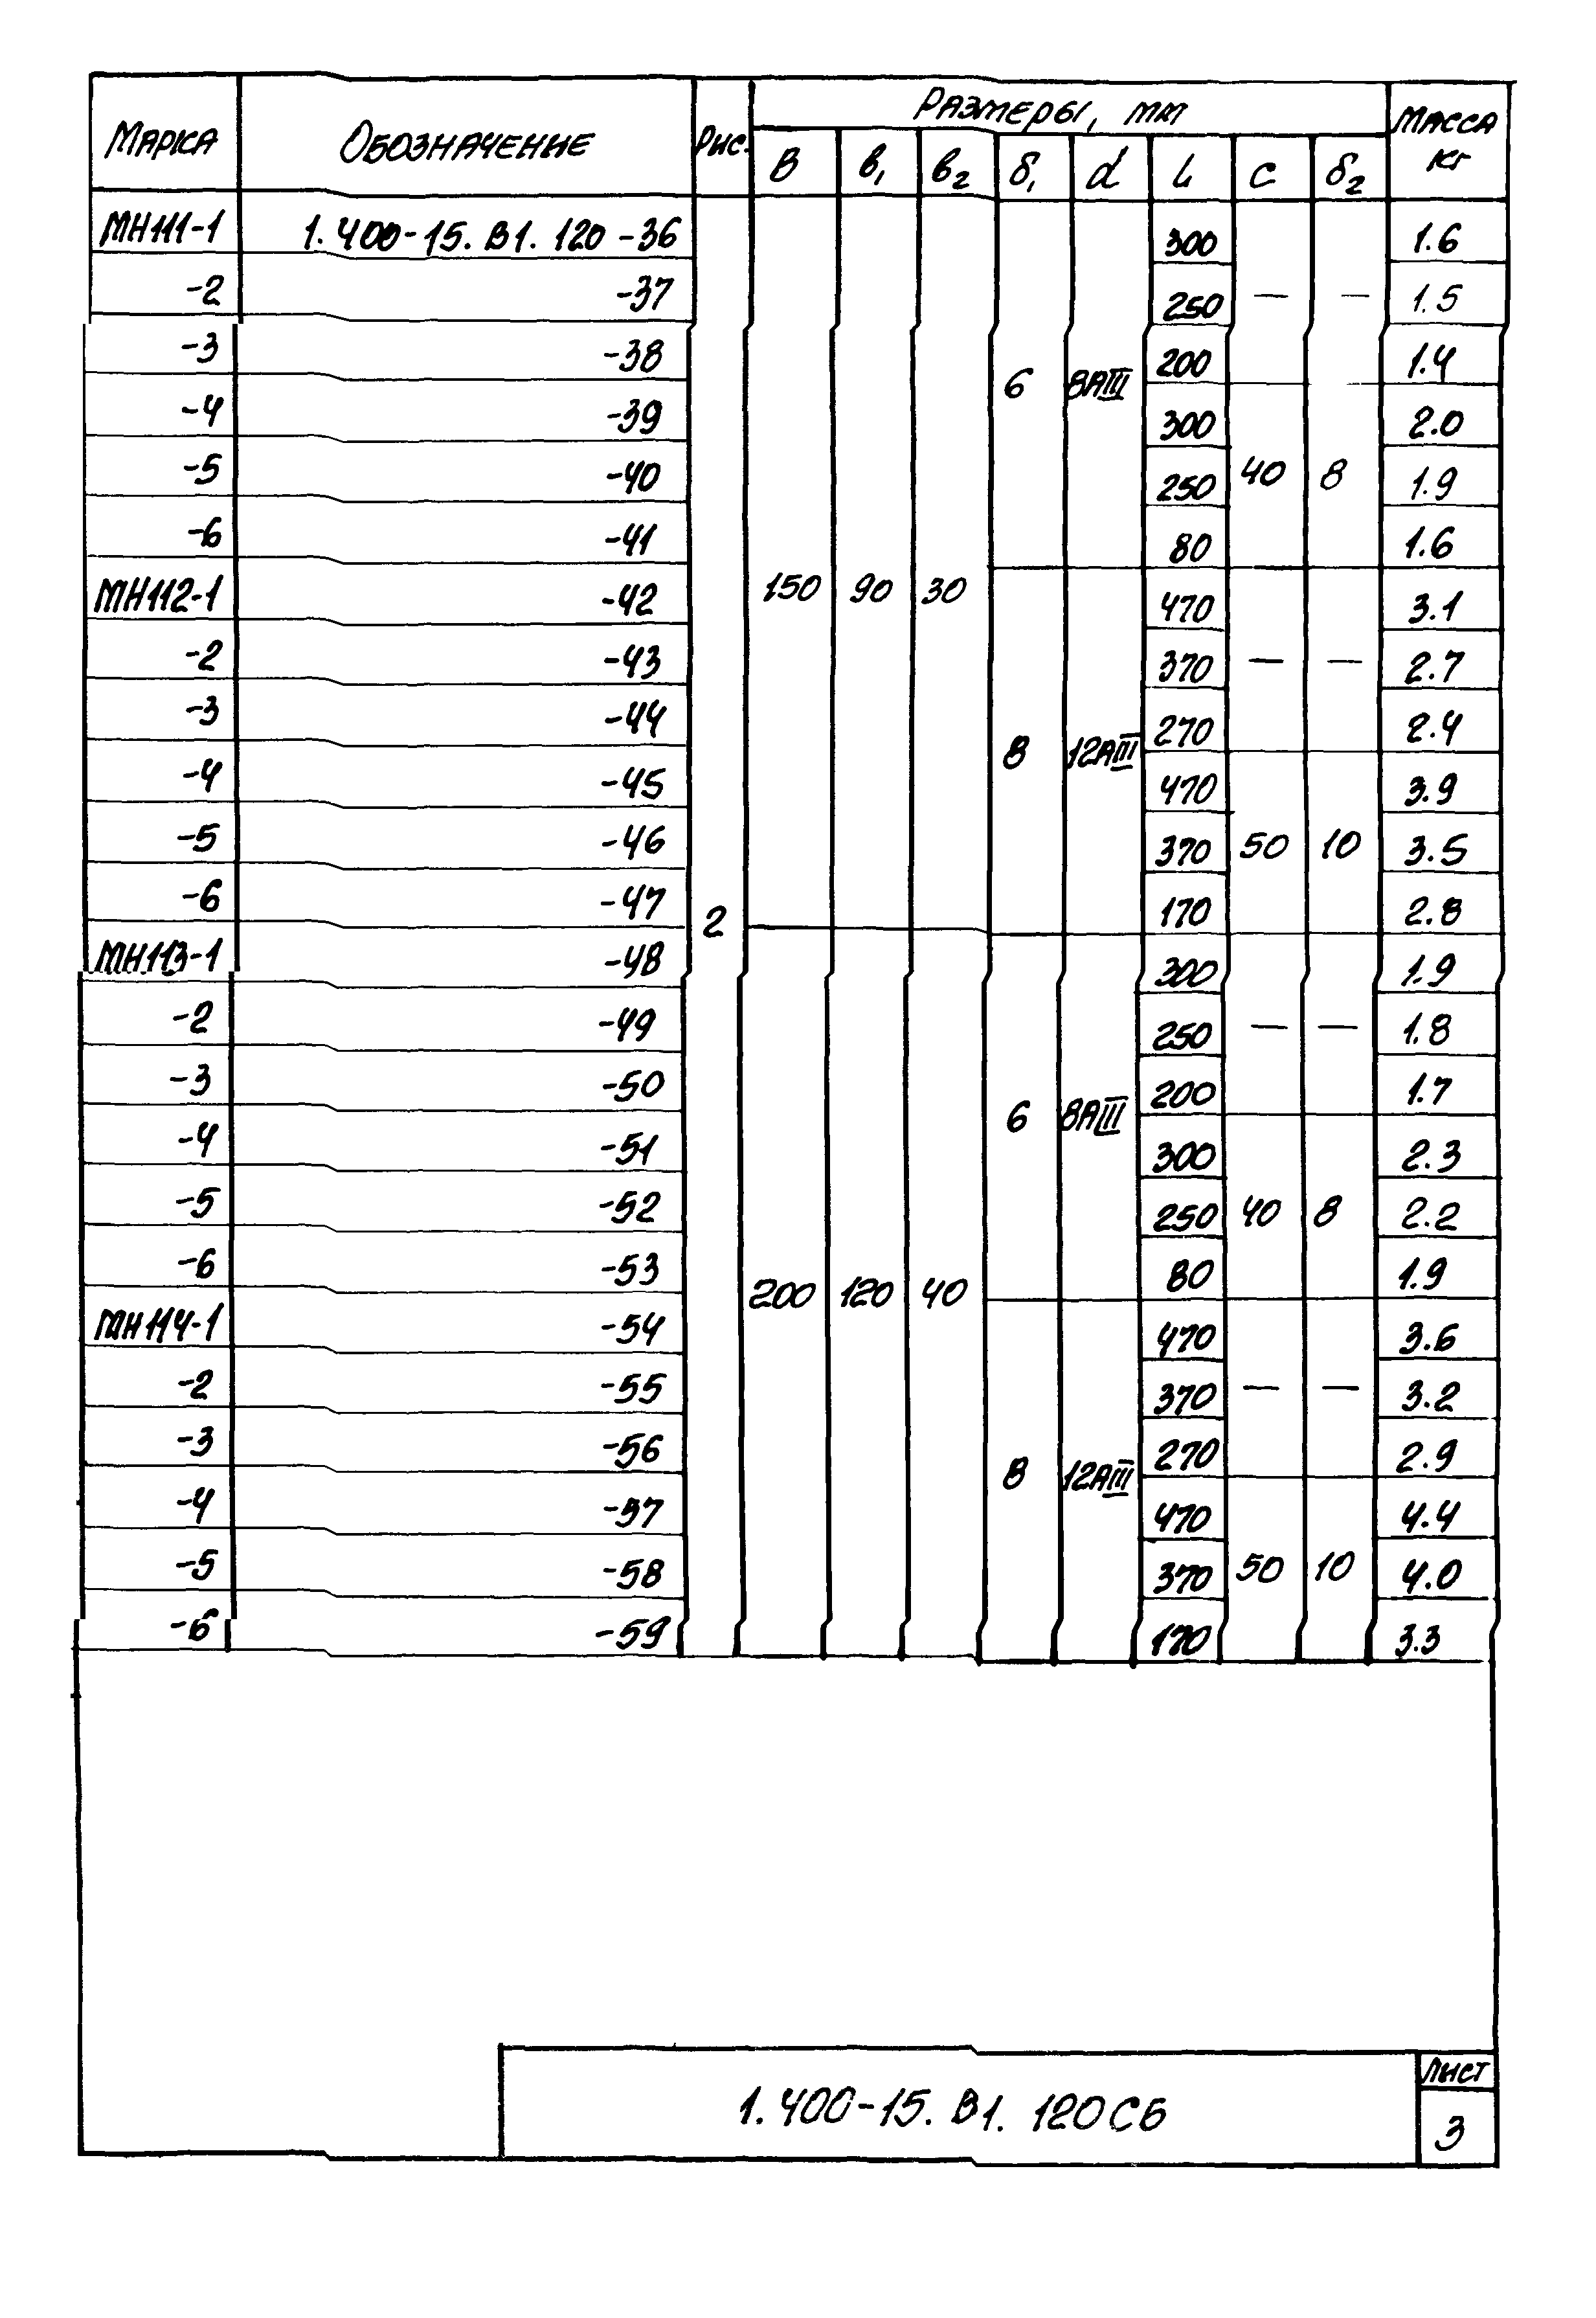 Марка Обозначение Рис. Размеры, мм Масса кг
В в₁ в₂ δ₁ d L с δ₂
МН111-1 1.400-15.В1.120-36 300 1.6
-2 -37 250 — — 1.5
-3 -38 200 1.4
6 8АIII
-4 -39 300 2.0
-5 -40 250 40 8 1.9
-6 -41 80 1.6
МН112-1 150 90 30 -42 470 3.1
-2 -43 370 — — 2.7
-3 -44 270 2.4
8 12АIII
-4 -45 470 3.9
-5 -46 370 50 10 3.5
-6 -47 170 2.8
2
МН113-1 -48 300 1.9
-2 -49 250 — — 1.8
-3 -50 200 1.7
6 8АIII
-4 -51 300 2.3
-5 -52 250 40 8 2.2
-6 -53 200 120 40 80 1.9
МН114-1 -54 470 3.6
-2 -55 370 — — 3.2
-3 -56 270 2.9
8 12АIII
-4 -57 470 4.4
-5 -58 370 50 10 4.0
-6 -59 170 3.3
1.400-15.В1.120СБ
Лист
3